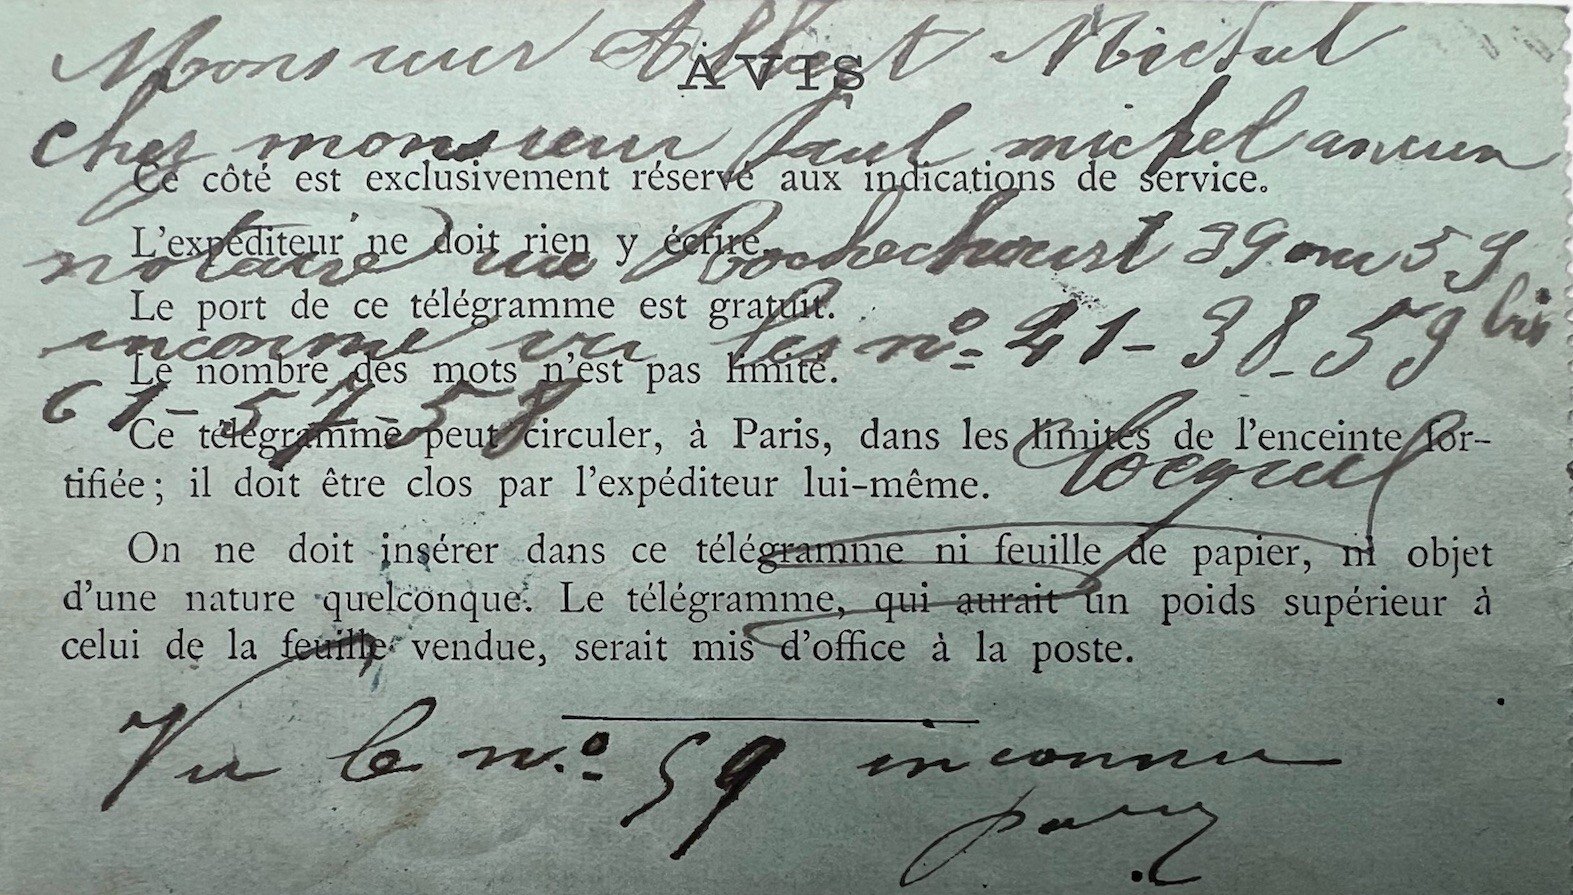 Monsieur Albert Michel
AVIS
chez monsieur Paul michel ancien
Ce côté est exclusivement réservé aux indications de service.
L'expéditeur ne doit rien y écrire.
notaire rue Rochechouart 39 ou 59
Le port de ce télégramme est gratuit.
inconnu vu les nº 41-38-59 bis
Le nombre des mots n'est pas limité.
61-57 58
Ce télégramme peut circuler, à Paris, dans les limites de l'enceinte for-
tifiée; il doit être clos par l'expéditeur lui-même.
On ne doit insérer dans ce télégramme ni feuille de papier, ni objet
d'une nature quelconque. Le télégramme, qui aurait un poids supérieur à
celui de la feuille vendue, serait mis d'office à la poste.
Vu le nº 59 inconnu